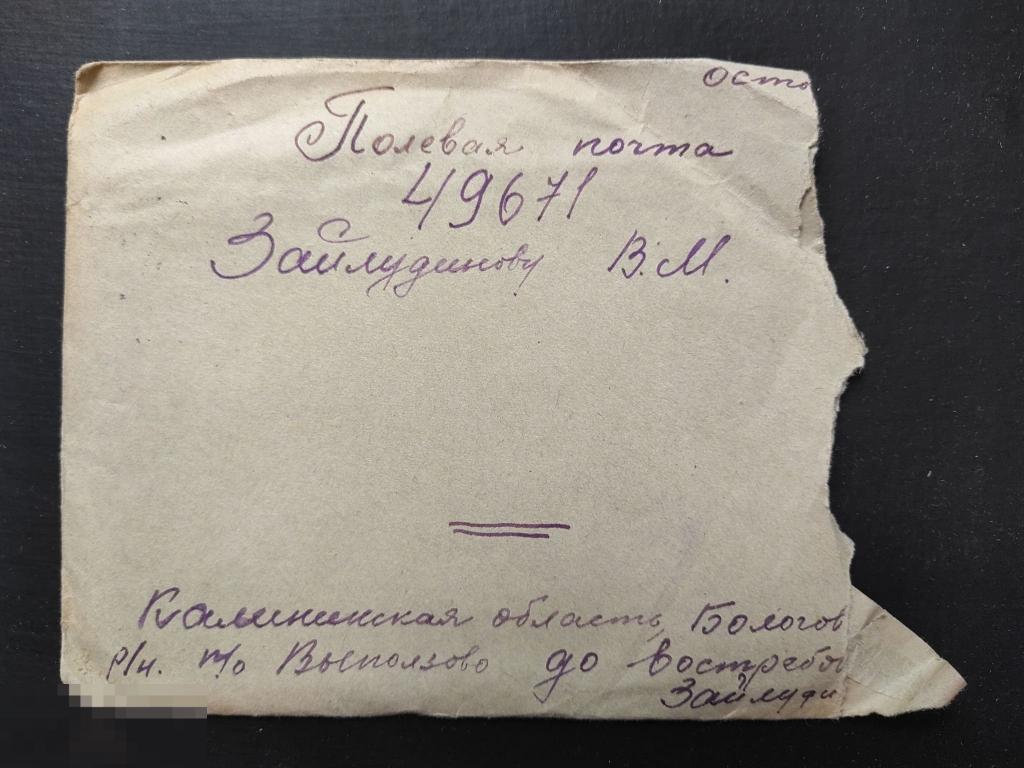 осто
Полевая почта
49671
Зайлудинову В.М.
Калининская область, Бологов
р/н. п/о Выползово до востребов
Зайлуди